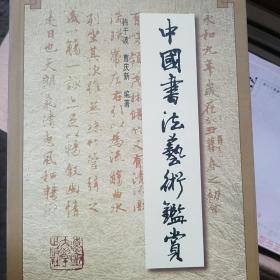 永和九年歲在癸丑暮春之初
中國書法藝術鑑賞
曹庆新 编著
帶左右引以為流觴曲水
列坐其次雖無絲竹管弦之
盛一觴一詠亦足以暢敘幽情
是日也天朗氣清惠風和暢